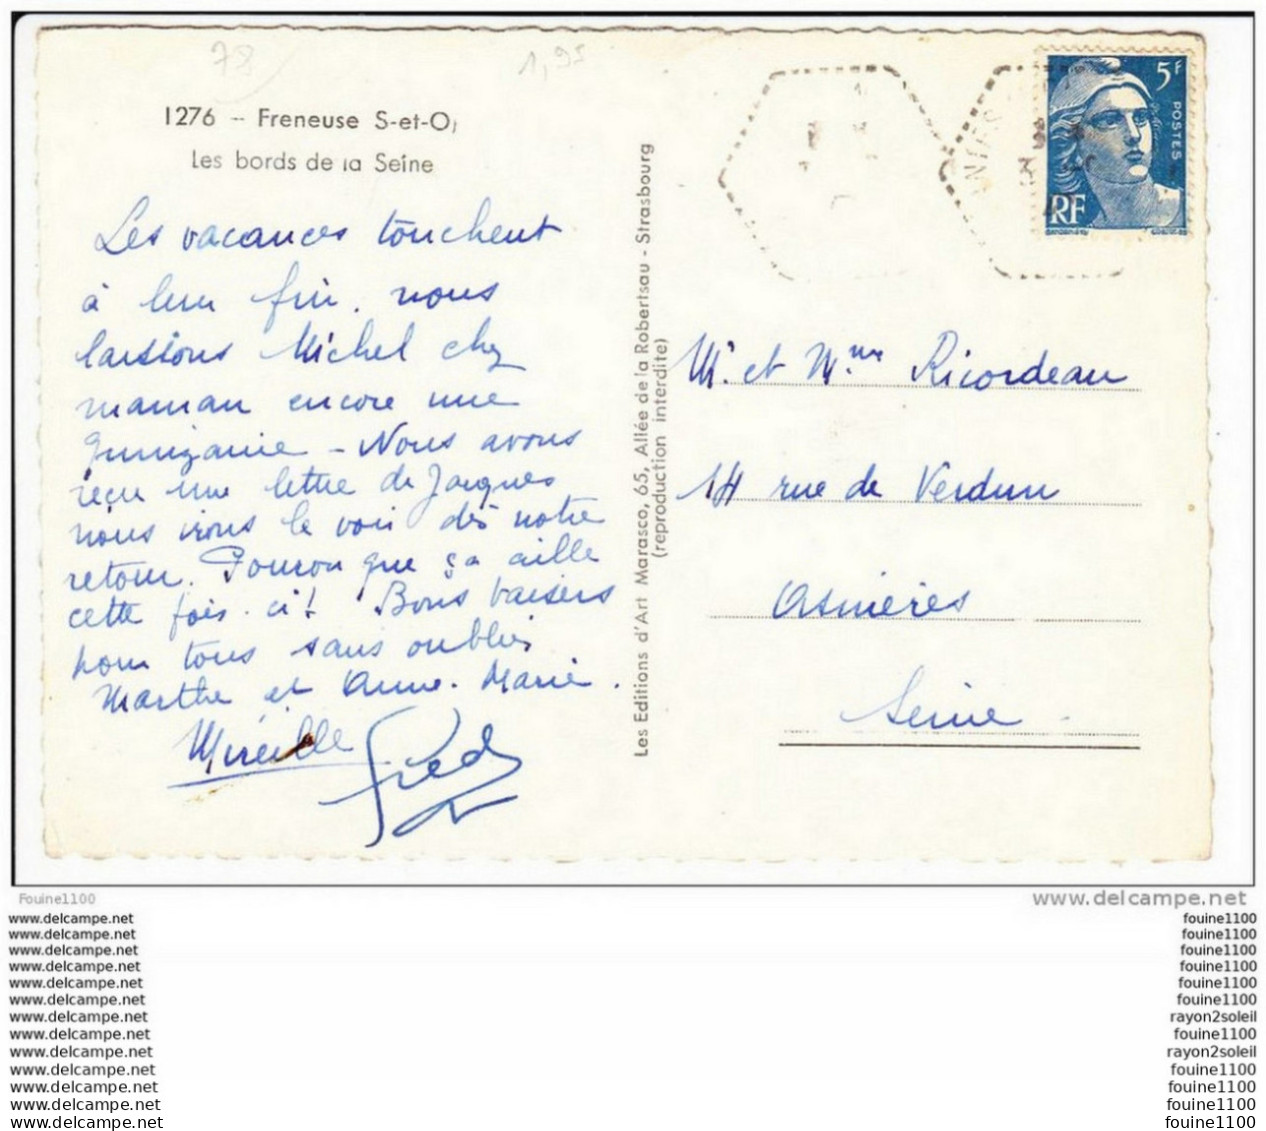 78
1,95
1276 – Freneuse S-et-O
Les bords de la Seine
Les vacances touchent
à leur fin. nous
laissons Michel chez
maman encore une
quinzaine – Nous avons
reçu une lettre de Jacques
nous irons le voir dès notre
retour. Pourvu que ça aille
cette fois-ci! Bons baisers
pour tous sans oublier
Marthe et Anne-Marie.
Mireille Fred
Les Editions d'Art Marasco, 65, Allée de la Robertsau - Strasbourg
(reproduction interdite)
5F
POSTES
RF
M. et Mme Ricordeau
14 rue de Verdun
Asnières
Seine
Fouine1100
www.delcampe.net
www.delcampe.net
www.delcampe.net
www.delcampe.net
www.delcampe.net
www.delcampe.net
www.delcampe.net
www.delcampe.net
www.delcampe.net
www.delcampe.net
www.delcampe.net
www.delcampe.net
www.delcampe.net
www.delcampe.net
fouine1100
fouine1100
fouine1100
fouine1100
fouine1100
fouine1100
rayon2soleil
fouine1100
rayon2soleil
fouine1100
fouine1100
fouine1100
fouine1100